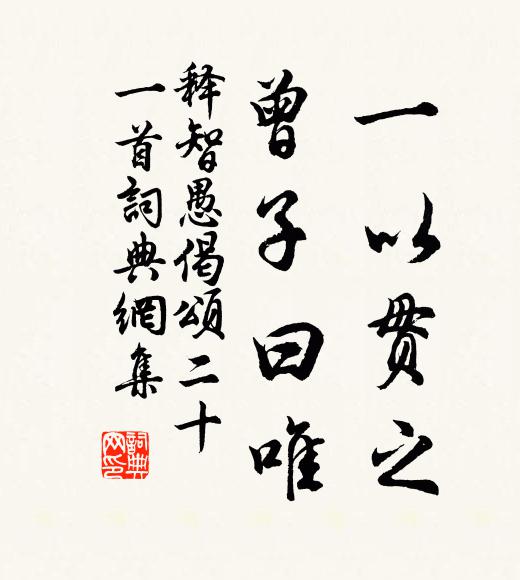 一以贯之
曾子曰唯
释智愚偈頌二十
一首詞典網集
詞典网印